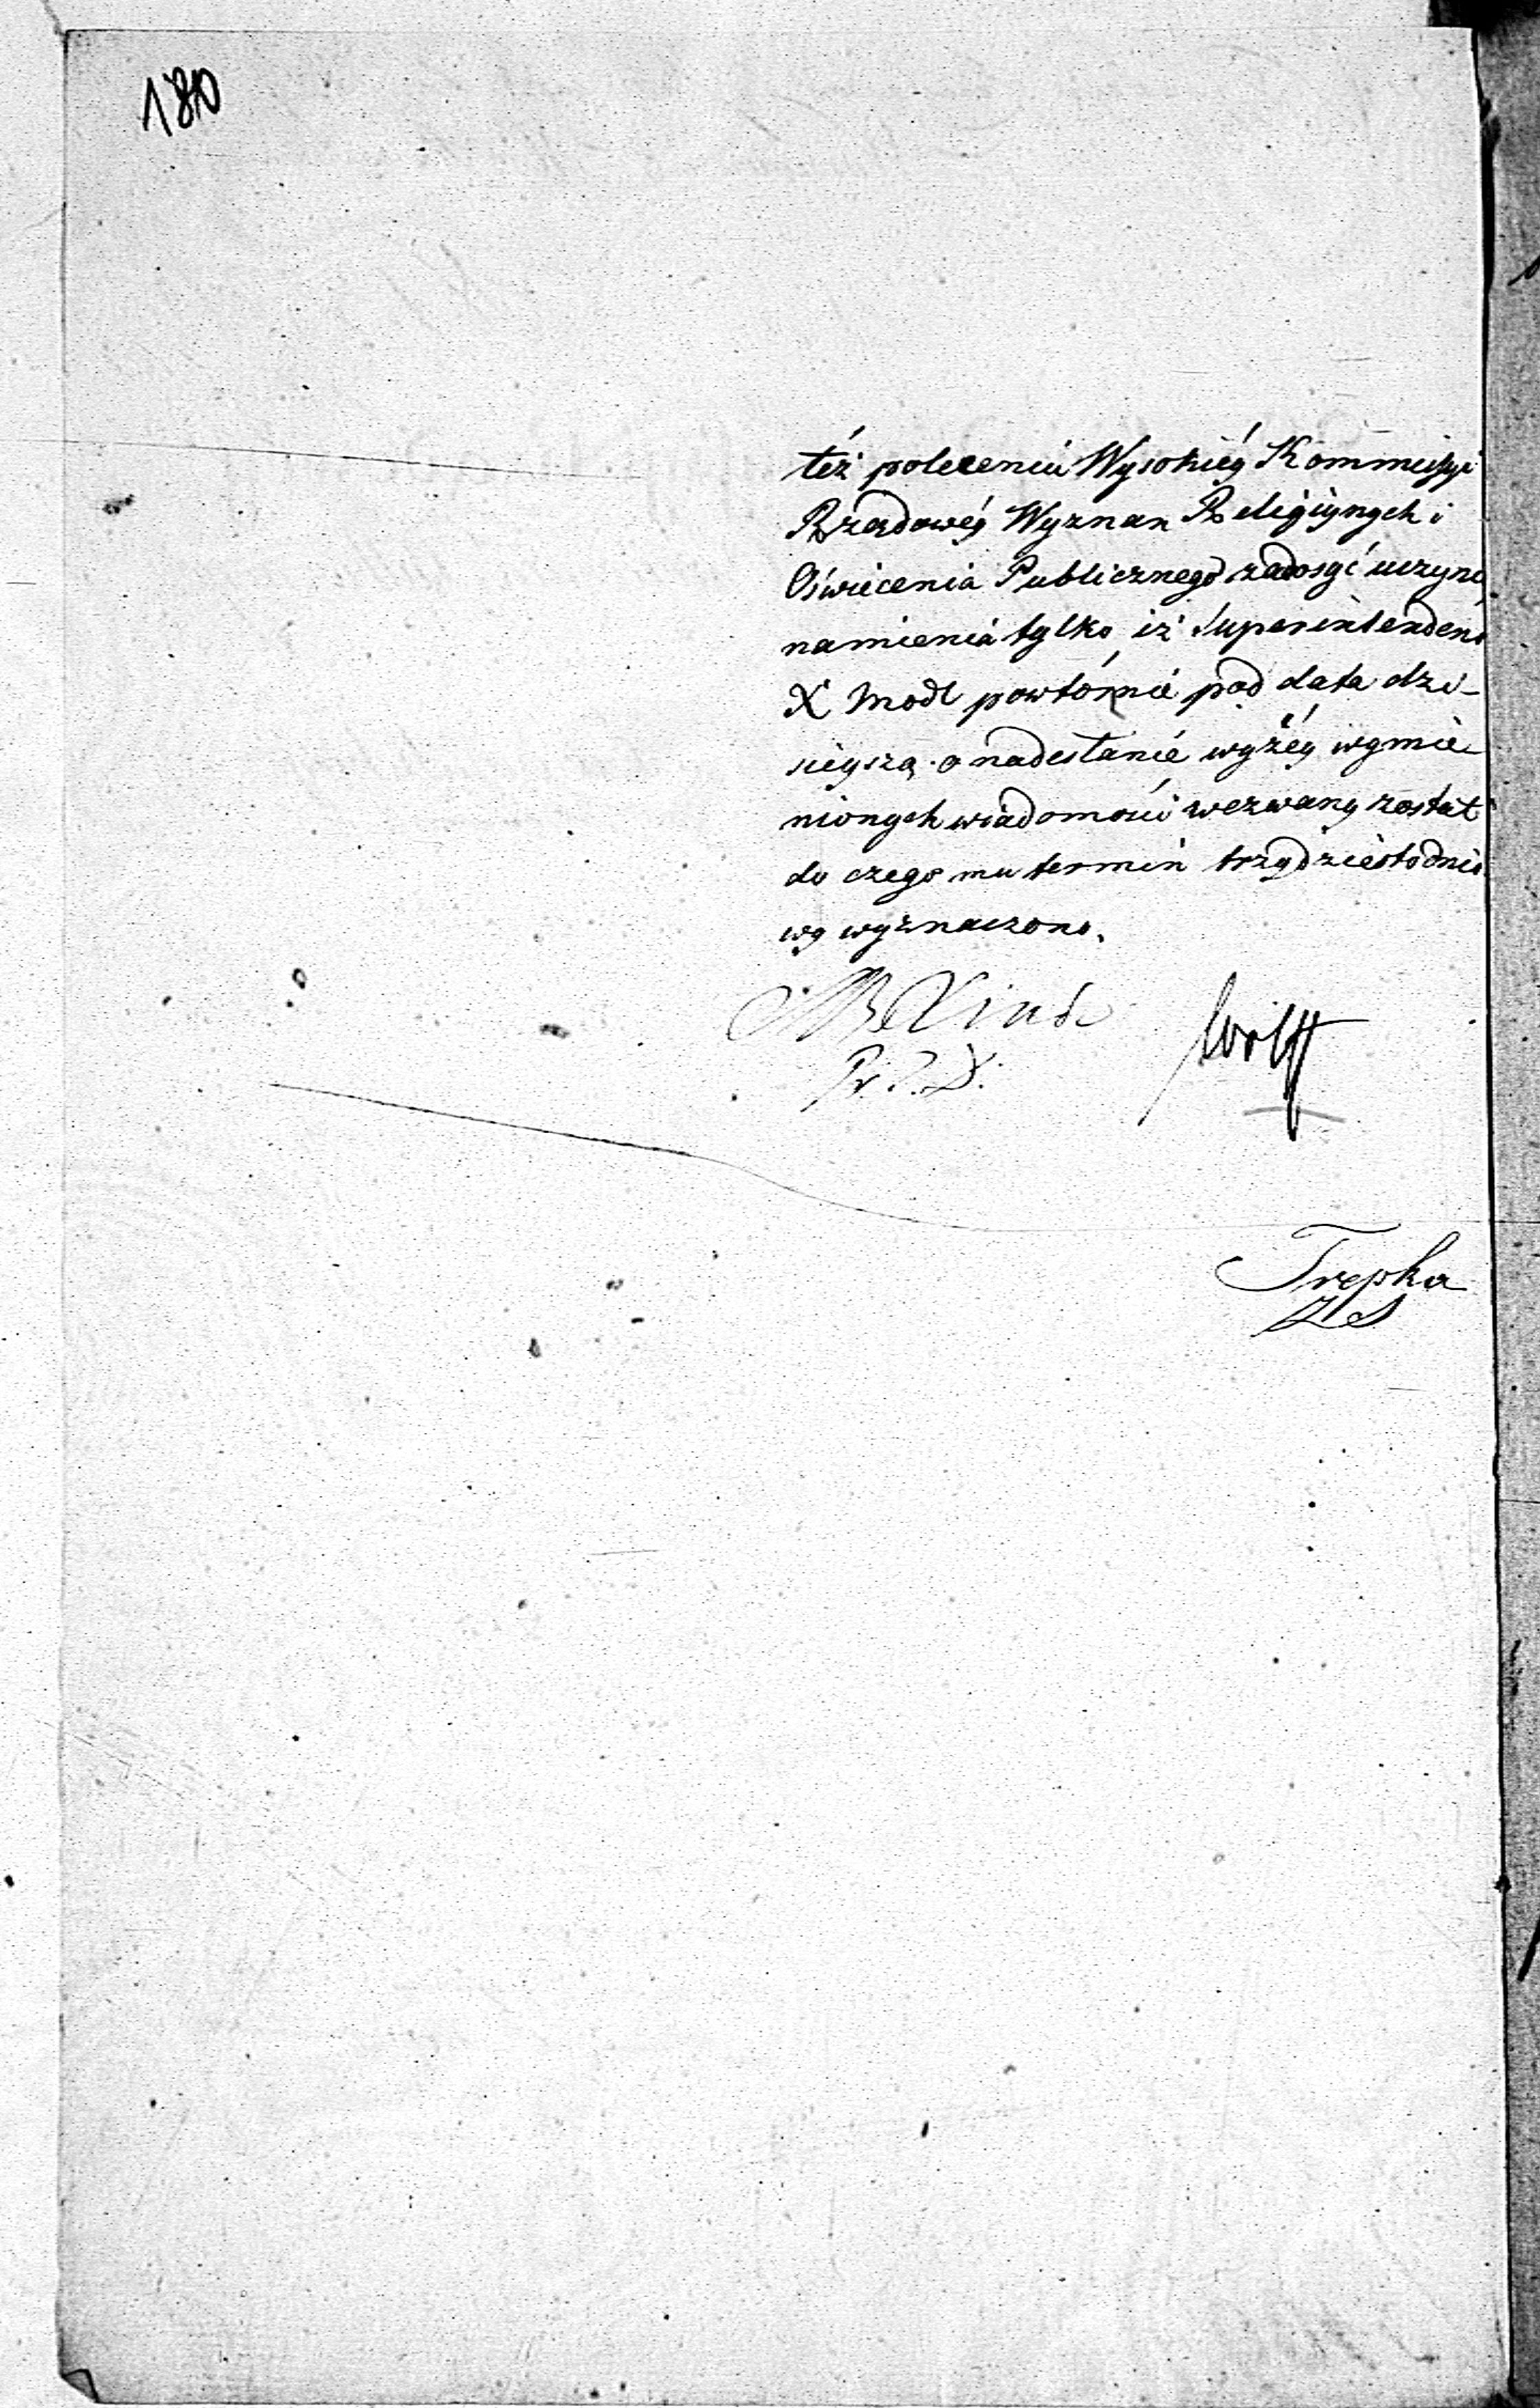 180
téż poleceniu Wysokiéy Kommissyi
Rządowéy Wyznan Religiynych i
Oświecenia Publicznego zadosyć uczyni
namienia tylko iż Superintendent
X Modl powtórnie pod data dzi-
sieyszą o nadesłanie wyżéy wymie
nionych wiadomości wezwany został
do czego mu termin trzydziestodnio
wy wyznaczono.
Wolff
Trepka
ZS